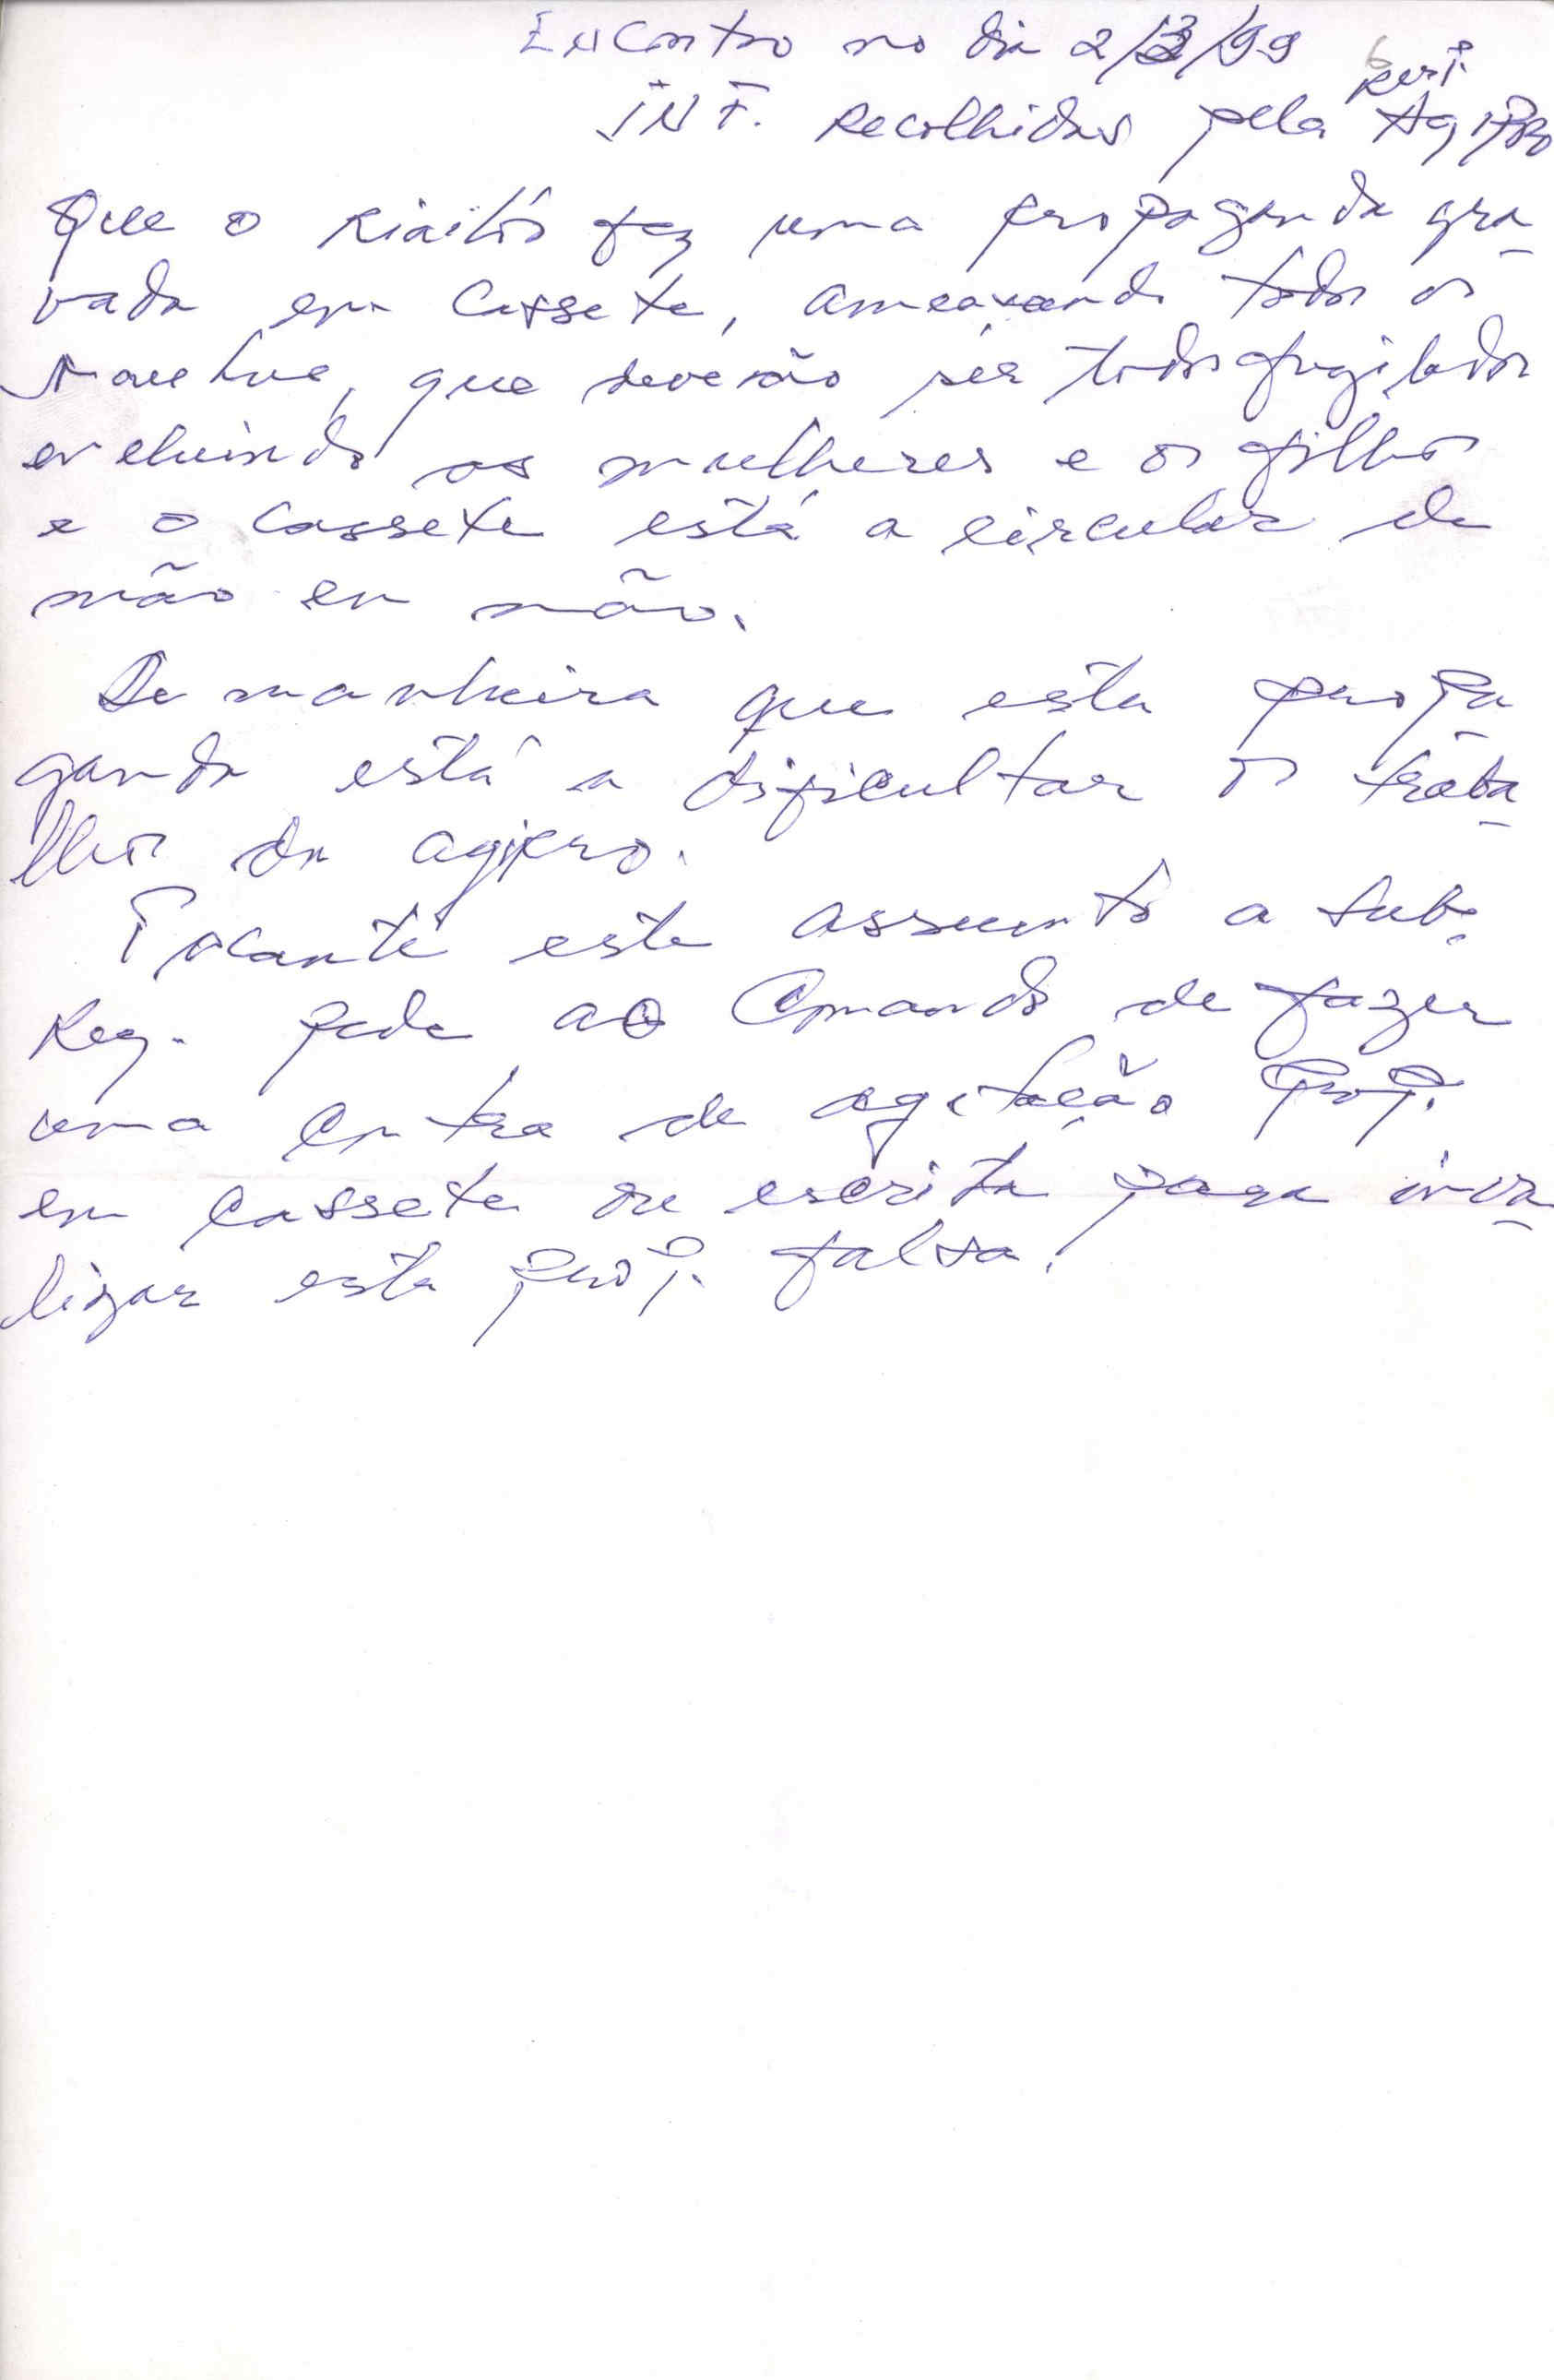 Encontro no dia 2/3/99
INF. Recolhidas pela Agipro
Que o fez uma propaganda gra-
vada em Cassete, ameaxando todos os
que deverão ser todos fuzilados
encluindo as mulheres e os filhos
e o cassete está a circular de
mão en mão.
De manheira que esta propa-
ganda está a dificultar os traba-
lhos da agipro.
Tocante este assunto a sub.
Reg. pede ao Comando de fazer
uma Contra de agitação Prop.
em cassete ou escrita para inva-
lizar esta prop. falsa.